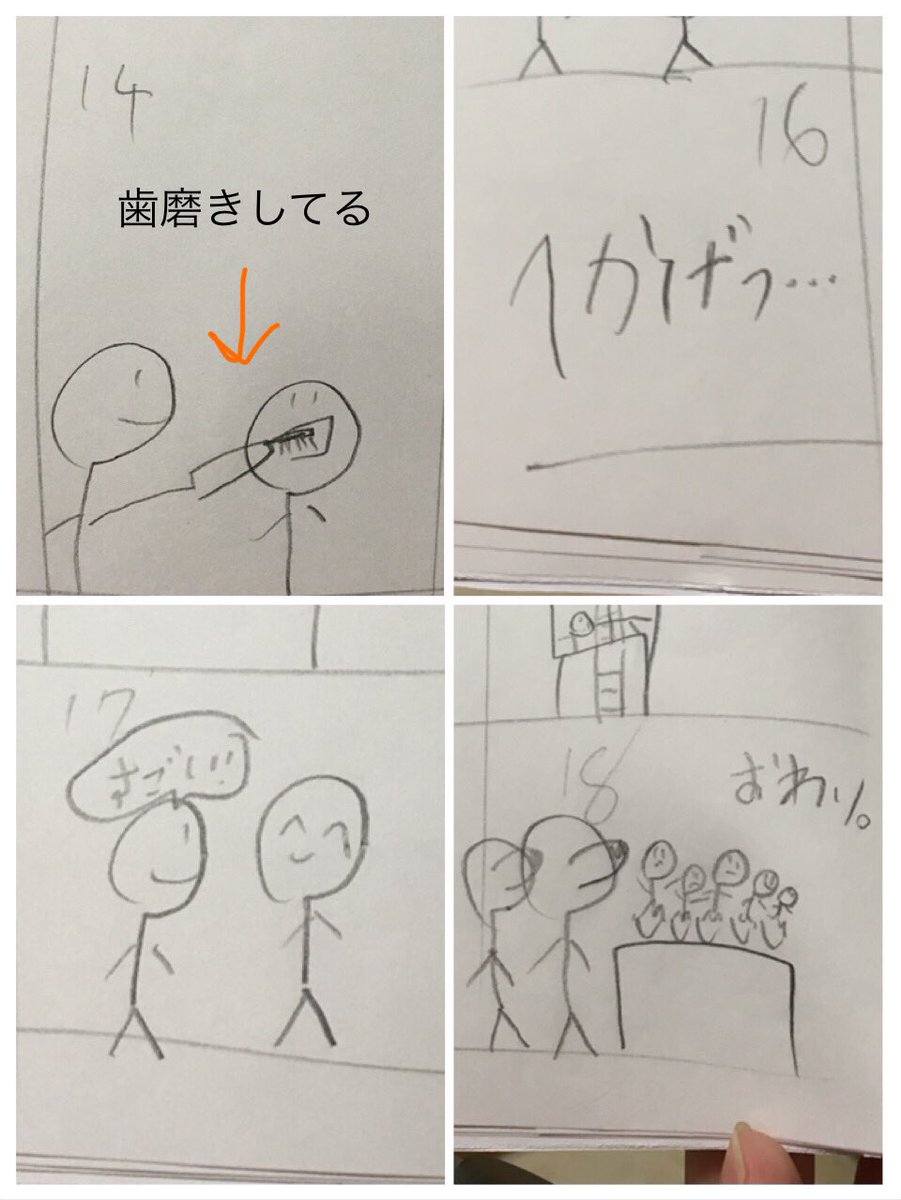 14
歯磨きしてる
16
人かげっ…
17
すごい!!
18
おわり。